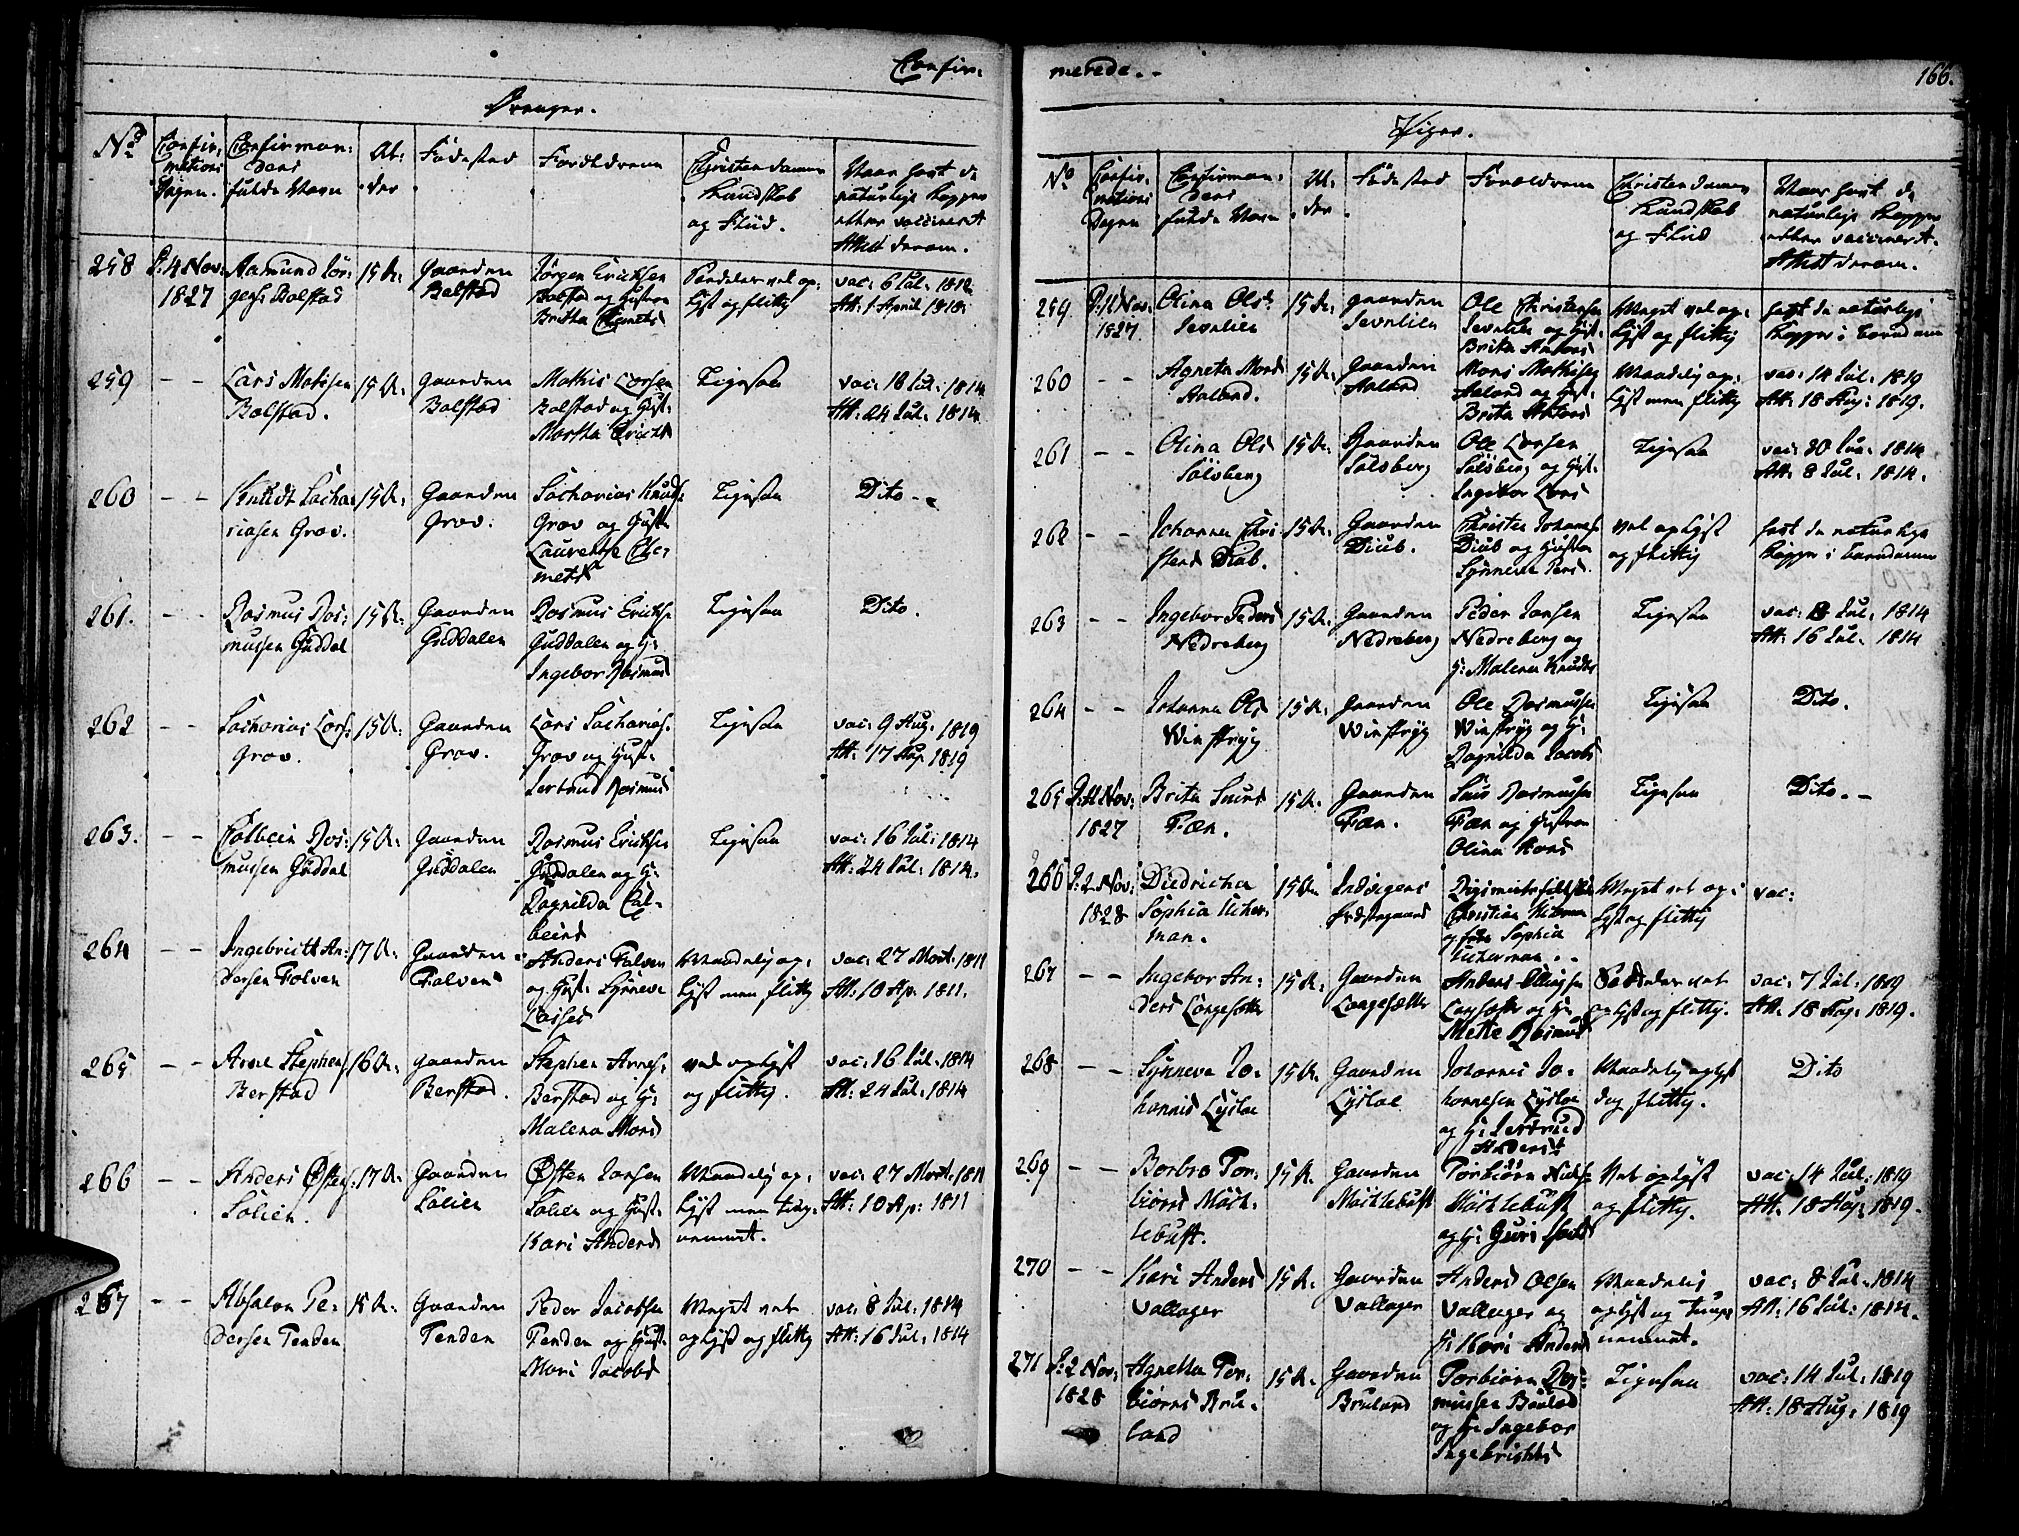 Confir-
Drenger.
No
Confir-
mations
Dagen.
Confirman-
dens
fulde Navn
Al-
der
Fødested
Forældrene
Christendoms
Kundskab
og Flid.
Naar havt de
naturlige Kopper
eller vaccineret
Attest derom.
258
D: 4 Nov:
1827
Aamund Jør-
gens: Bolstad
15 A:
Gaarden
Bolstad
Jørgen Erichsen
Bolstad og Hustru
Britha Clemets
vac: 6 Jul: 1812
Att: 1 April 1818
259
- -
Lars Mathisen
Bolstad.
15 A:
Gaarden
Bolstad
Mathis Larsen
Bolstad og Hust:
Martha Erichs
Ligesaa
vac: 18 Jul: 1814
Att: 24 Jul: 1814
260
- -
Knudt Sacha-
riasen Grov.
15 A:
Gaarden
Grov.
Sacharias Knuds:
Grov og Hustr
Laurentse Cle-
mets
Ligesaa
Dito.
261.
- -
Rasmus Ras-
mussen Guddal
15 A:
Gaarden
Guddalen
Rasmus Erichs:
Guddalen og H:
Ingebor Rasmus
Ligesaa
Dito.
262
- -
Sacharias Lars:
Grov.
15 A:
Gaarden
Grov.
Lars Sacharias:
Grov og Hust:
Jertrud Rasmus
Ligesaa
vac: 9 Aug: 1819
Att: 17 Aug. 1819
263.
- -
Colbein Ras-
mussen Guddal
15 A:
Gaarden
Guddalen
Rasmus Erichsen
Guddalen og H:
Ragnilda Col-
beins
Ligesaa
vac: 16 Jul: 1814
Att: 24 Jul: 1814.
264
- -
Ingebrictt An-
dersen Folven
17 A:
Gaarden
Folven
Anders Folven
og Hust: Synneve
Lasses
Maadelig op-
lyst men flittig
vac: 27 Mart: 1811
Att: 10 Ap: 1811.
265
- -
Arne Stephens:
Berstad
16 A:
Gaarden
Berstad.
Stephen Arnes:
Berstad og H:
Malena Mons
vel oplyst
og flittig.
vac: 16 Jul: 1814
Att: 24 Jul: 1814
266
- -
Anders Østens:
Solien.
17 A:
Gaarden
Solien
Østen Larsen
Solien og Hust:
Kari Anders
Maadelig op-
lyst men tung-
nemmet.
vac: 27 Mart: 1811
Att: 10 Ap: 1811
267
- -
Absalon Pe-
dersen Tenden
15 A:
Gaarden
Tenden
Peder Jacobsen
Tenden og Hust:
Mari Jacobs
Meget vel
oplyst og flittig
vac: 8 Jul: 1814
Att: 16 Jul: 1814
merede.
166.
Piger.
No
Confir-
mations
Dagen
Confirman-
dens
fulde Navn
Al-
der.
Fødested
Forældrene
Christendoms
Kundskab
og Flid
Naar havt de
naturlige Kopper
eller vaccineret.
Attest derom.
259
1827
Olina Ols:
Jevnlien
15 A:
Gaarden
Jevnlien
Ole Christensen
Jevnlien og Hust:
Brita Anders
Meget vel op-
lyst og flittig
havt de naturlige
Kopper i Barndom
260
- -
Agneta Mons
Aaland.
15 A:
Gaarden
Aaland
Mons Mathisen
Aaland og Hust:
Brita Anders
Maadelig op-
lyst men flittig
vac: 14 Jul: 1819
Att: 18 Aug: 1819.
261
- -
Olina Ols
Solsberg
15 A:
Gaarden
Solsberg
Ole Larsen
Solsberg og Hust:
Ingebor Lars
Ligesaa
vac: 30 Jun: 1814
Att: 8 Jul: 1814.
262
- -
Johanna Chri-
stens Diub.
15 A:
Gaarden
Diub.
Christen Johannes:
Diub og Hustru
Synneva Pers
vel oplyst
og flittig
havt de naturlige
Kopper i Barndommen
263
- -
Ingebor Peders
Nedreberg
15 A:
Gaarden
Nedreberg
Peder Jansen
Nedreberg og
H: Malena Knuds
Ligesaa
vac: 8 Jul: 1814
Att: 16 Jul: 1814
264
- -
Johanna Ols
Winstryg
15 A:
Gaarden
Winstryg
Ole Rasmussen
Winstryg og H:
Ragnilda Jacobs
Ligesaa
Dito.
265
D: 11 Nov:
1827
Brita Siurs
Fæn.
15 A.
Gaarden
Fæn.
Siur Rasmussen
Fæn og Hustru
Olina
Ligesaa
Dito.
266
D: 2 Nov:
1828
Diedricha
Sophia Ucher-
man.
15 A:
Indvigens
Præstegaard
Christian Ucherman
og Frue Sophia
Ucherman.
Meget vel op-
lyst og flittig
vac:
267
- -
Ingebor An-
ders Langesætter
15 A:
Gaarden
Langesætter
Anders Ellingsen
Langsætter og H:
Mette Rasmus
Særdeles vel
oplyst og flittig.
vac: 7 Jul: 1819
Att: 18 Aug: 1819.
268
- -
Synneva Jo-
hannis Lysloe
15 A:
Gaarden
Lysloe
Johannes Jo-
hannesen Lysloe
og H: Jertrud
Anders:
Maadelig oplyst
dog flittig.
Dito
269
- -
Barbro Tor-
biørns Mÿkle-
bust.
15 A:
Gaarden
Mÿklebust
Torbiørn Niels:
Mÿklebust
og H: Guri
Vel oplyst
og flittig.
vac: 14 Jul: 1819
Att: 18 Aug: 1819.
270
- -
Kari Anders
Vallager
15 A:
Gaarden
Vallager
Anders Olsen
Vallager og
H: Kari Anders
Maadelig
oplyst og tung-
nemmet.
vac: 8 Jul: 1814
Att: 16 Jul: 1814.
271
D: 2 Nov:
1828
Agnetha Tor-
biørns Bru-
land
15 A:
Gaarden
Bruland
Torbiørn Ras-
mussen Bruland
og H: Ingebor
Ingebricths
Ligesaa
vac: 14 Jul: 1819
Att: 18 Aug: 1819